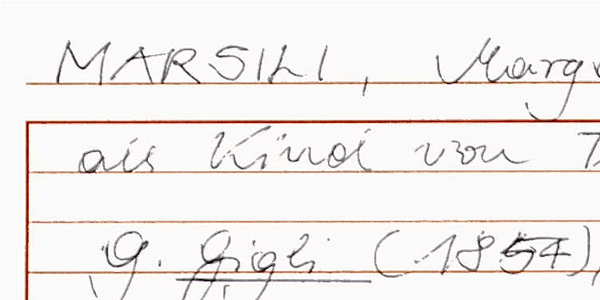 MARSILI, Marg
als Kind von T
G. Gigli (1854),